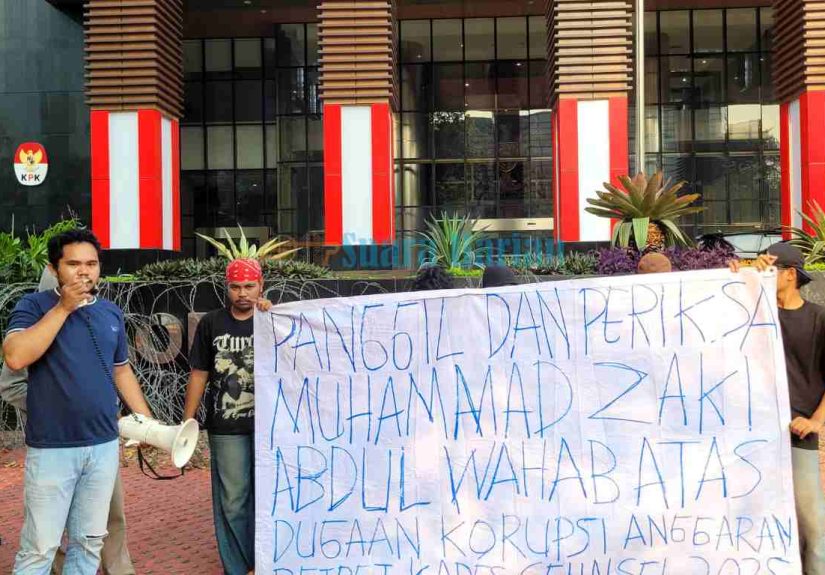 KPK
Suara
PANGGIL DAN PERIKSA
MUHAMMAD ZAKI
ABDUL WAHAB ATAS
DUGAAN KORUPSI ANGGARAN
2025